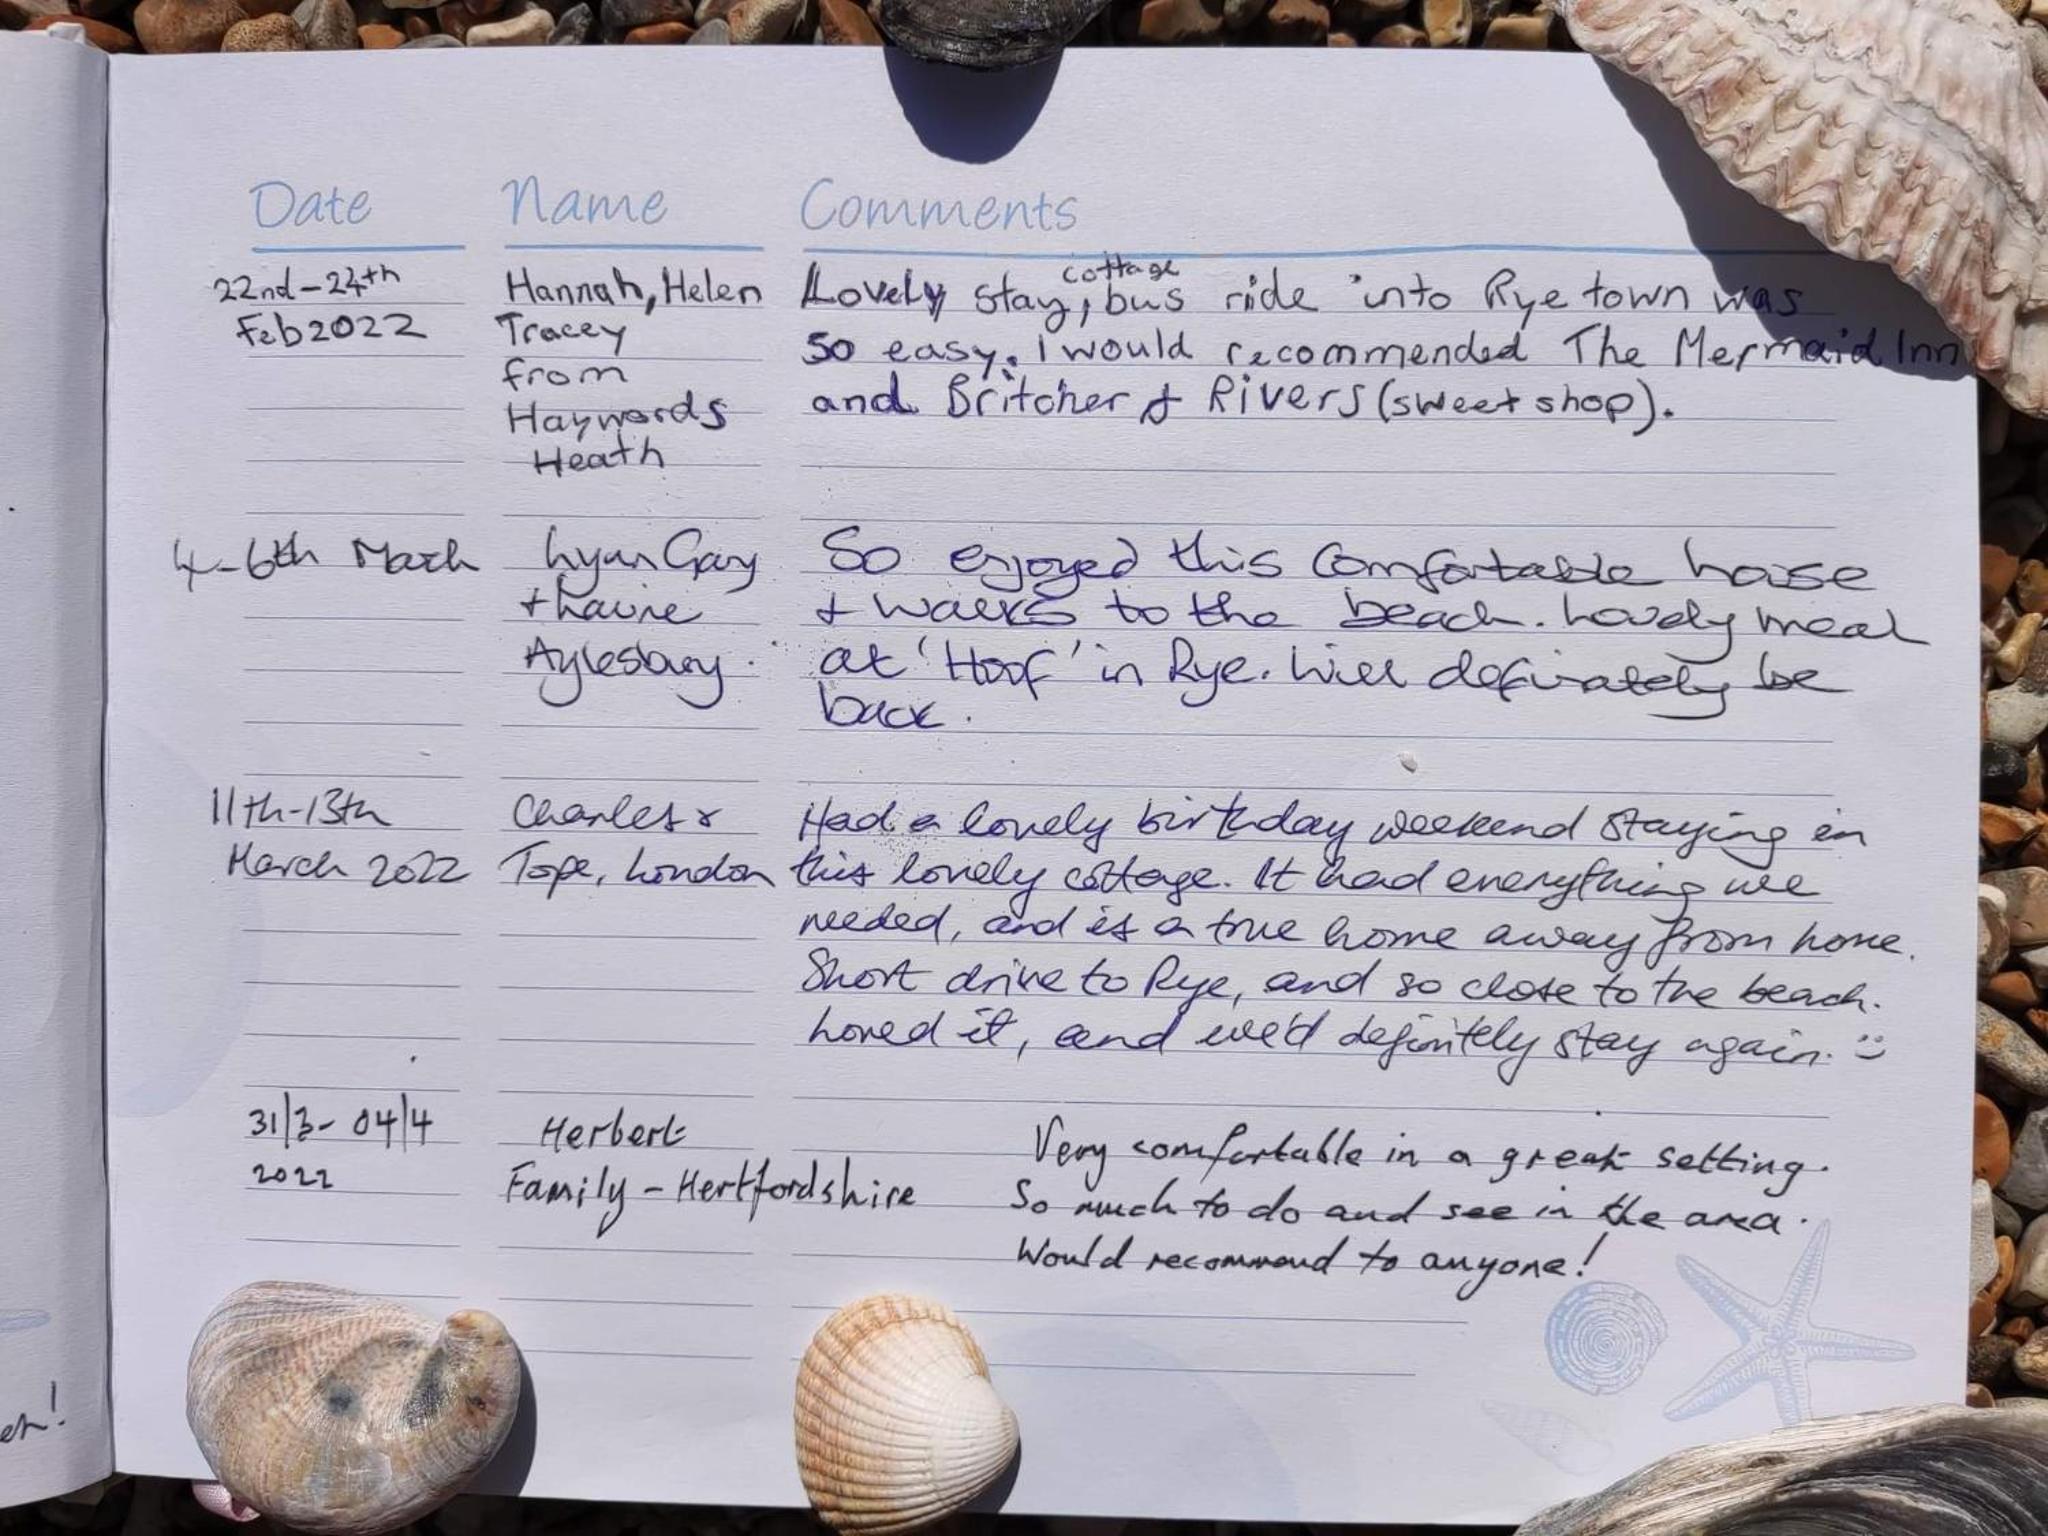 Date Name Comments
22nd-24th Hannah, Helen Lovely stay, cottage bus ride into Rye town was
Feb 2022 Tracey so easy. I would recommended The Mermaid Inn
from and Britcher & Rivers (sweet shop).
Haywards
Heath
4-6th March Lynn Gary So enjoyed this comfortable house
+ Laurie + walks to the beach. Lovely meal
Aylesbury. at 'Hoof' in Rye. Will definately be
back.
11th-13th Charles & Had a lovely birthday weekend staying in
March 2022 Tope, London this lovely cottage. It had everything we
needed, and is a true home away from home.
Short drive to Rye, and so close to the beach.
Loved it, and we'd definitely stay again. :)
31/3- 04/4 Herbert Very comfortable in a great setting.
2022 Family - Hertfordshire So much to do and see in the area.
Would recommend to anyone!